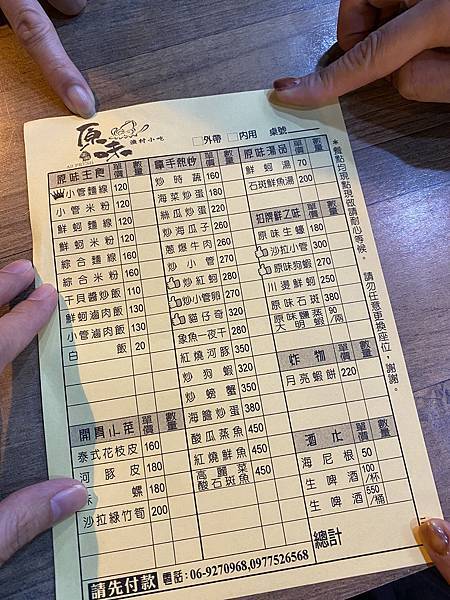 原味
漁村小吃
□外帶 □內用 桌號
原味主食 單價 數量
小管麵線 120
小管米粉 120
鮮蚵麵線 120
鮮蚵米粉 120
綜合麵線 160
綜合米粉 160
干貝醬炒飯 110
鮮蚵滷肉飯 130
小管滷肉飯 130
白飯 20
開胃小菜 單價 數量
泰式花枝皮 160
河豚皮 180
螺 180
沙拉綠竹筍 200
拿手熱炒 單價 數量
炒時蔬 160
海菜炒蛋 180
絲瓜炒蛋 220
炒海瓜子 260
蔥爆牛肉 260
炒小管 270
炒紅蚵 280
炒小管卵 270
貓仔奇 320
象魚一夜干 280
紅燒河豚 350
炒狗蝦 320
炒螃蟹 350
海膽炒蛋 380
酸瓜蒸魚 450
紅燒鮮魚 450
高麗菜酸石斑魚 450
原味湯品 單價 數量
鮮蚵湯 70
石斑鮮魚湯 200
招牌鮮之味 單價 數量
原味生蠔 180
沙拉小管 300
原味狗蝦 270
川燙鮮蚵 250
原味石斑 380
原味鹽蒸大明蝦 90/兩
炸物 單價 數量
月亮蝦餅 220
酒水 單價 數量
海尼根 50
生啤酒 100/杯
生啤酒 550/桶
總計
*餐點均現點現做請耐心等候。 請勿任意更換座位，謝謝。
請先付款 電話：06-9270968,0977526568